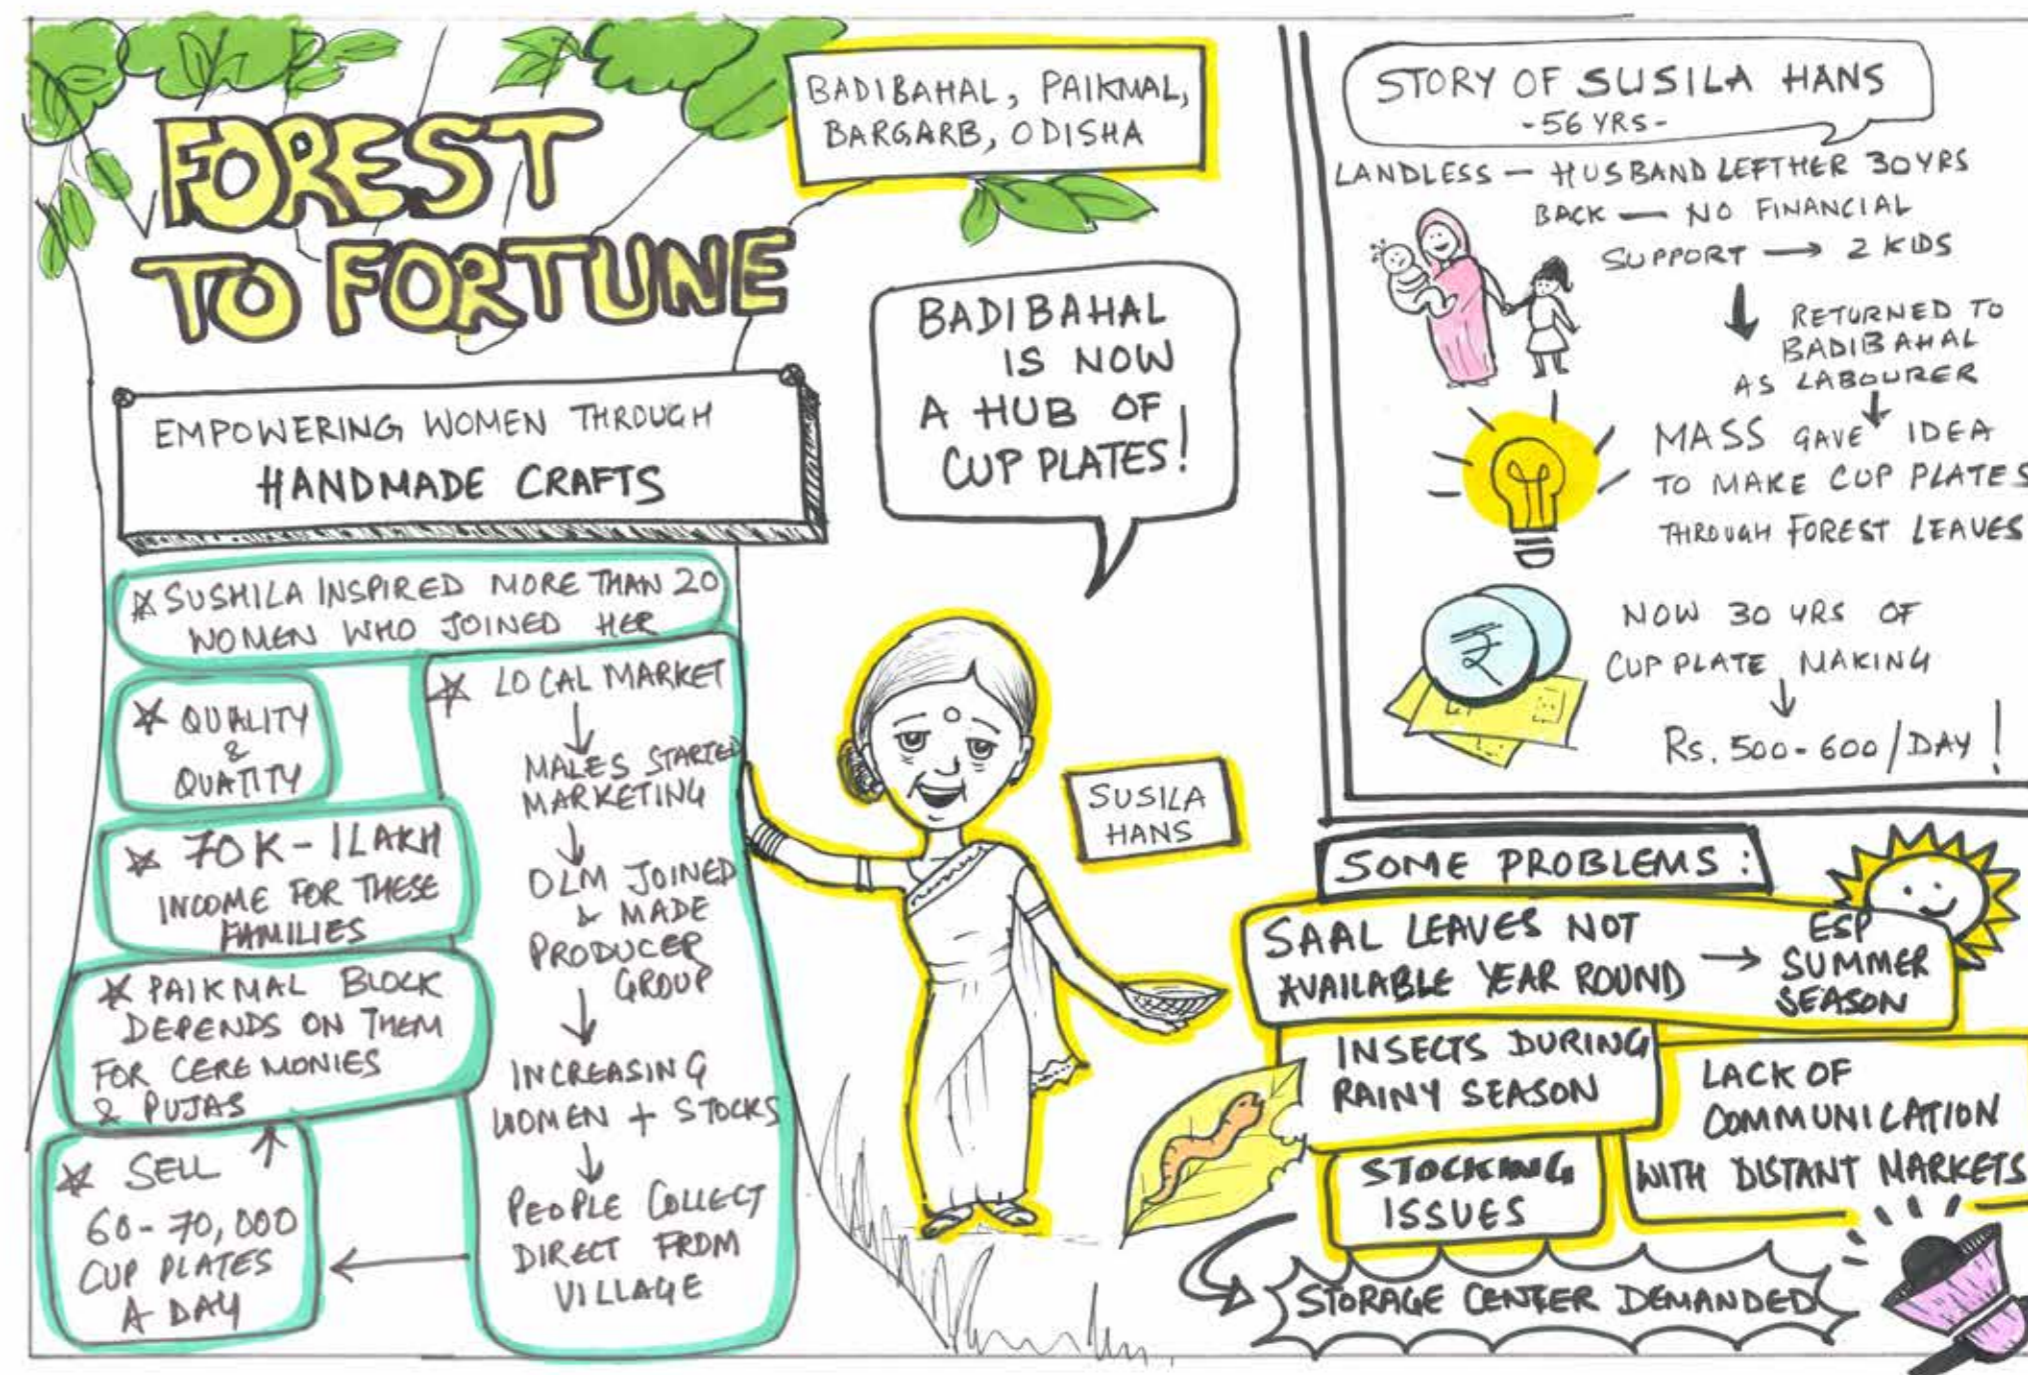 FOREST
TO FORTUNE
BADIBAHAL, PAIKMAL,
BARGARB, ODISHA
EMPOWERING WOMEN THROUGH
HANDMADE CRAFTS
SUSHILA INSPIRED MORE THAN 20
WOMEN WHO JOINED HER
QUALITY
&
QUATITY
70K-1LAKH
INCOME FOR THESE
FAMILIES
PAIKMAL BLOCK
DEPENDS ON THEM
FOR CEREMONIES
& PUJAS
SELL
60-70,000
CUP PLATES
A DAY
LOCAL MARKET
MALES STARTED
MARKETING
OLM JOINED
& MADE
PRODUCER
GROUP
INCREASING
WOMEN + STOCKS
PEOPLE COLLECT
DIRECT FROM
VILLAGE
BADIBAHAL
IS NOW
A HUB OF
CUP PLATES!
SUSILA
HANS
STORY OF SUSILA HANS
-56 YRS-
LANDLESS - HUSBAND LEFT HER 30 YRS
BACK - NO FINANCIAL
SUPPORT → 2 KIDS
RETURNED TO
BADIBAHAL
AS LABOURER
MASS GAVE IDEA
TO MAKE CUP PLATES
THROUGH FOREST LEAVES
₹
NOW 30 YRS OF
CUP PLATE MAKING
Rs. 500-600/DAY!
SOME PROBLEMS:
SAAL LEAVES NOT
AVAILABLE YEAR ROUND →
ESP
SUMMER
SEASON
INSECTS DURING
RAINY SEASON
LACK OF
COMMUNICATION
WITH DISTANT MARKETS
STOCKING
ISSUES
STORAGE CENTER DEMANDED